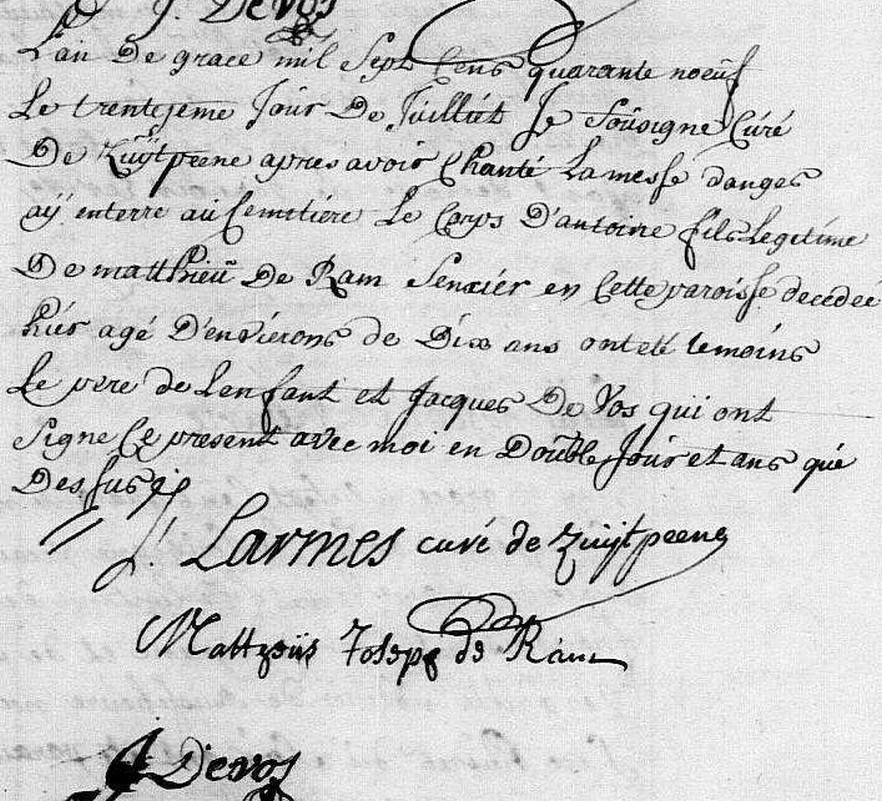 J. Devos
L'an De grace mil Sept Cens quarante noeuf
Le trentejeme Jour De Juilliet Je Soûsigne Curé
De Zuÿtpeene apres avoir Chanté La messe d'anges
aÿ enterre au Cemtiére Le Corps D'antoine fils Legitime
De matthieu De Ram Senxiér en Cette paroisse decedeé
hiér agé D'environs de Dix ans ont eté temoins
Le pere de Lenfant et Jacques De Vos qui ont
Signe Ce present avec moi en Double Jour et ans que
Dessus
J. Larmes curé de Zuijtpeene
Mattheüs Joseph de Ram
J Devos